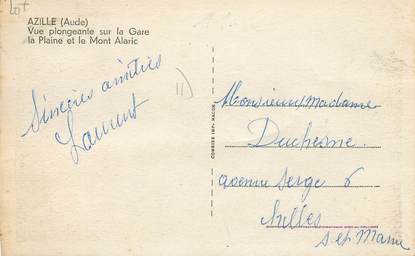 Lot
AZILLE (Aude)
Vue plongeante sur la Gare
la Plaine et le Mont Alaric
Sincères amitiés
Laurent
11)
Monsieur/Madame
Duchesne
avenue Serge 6
Nilles